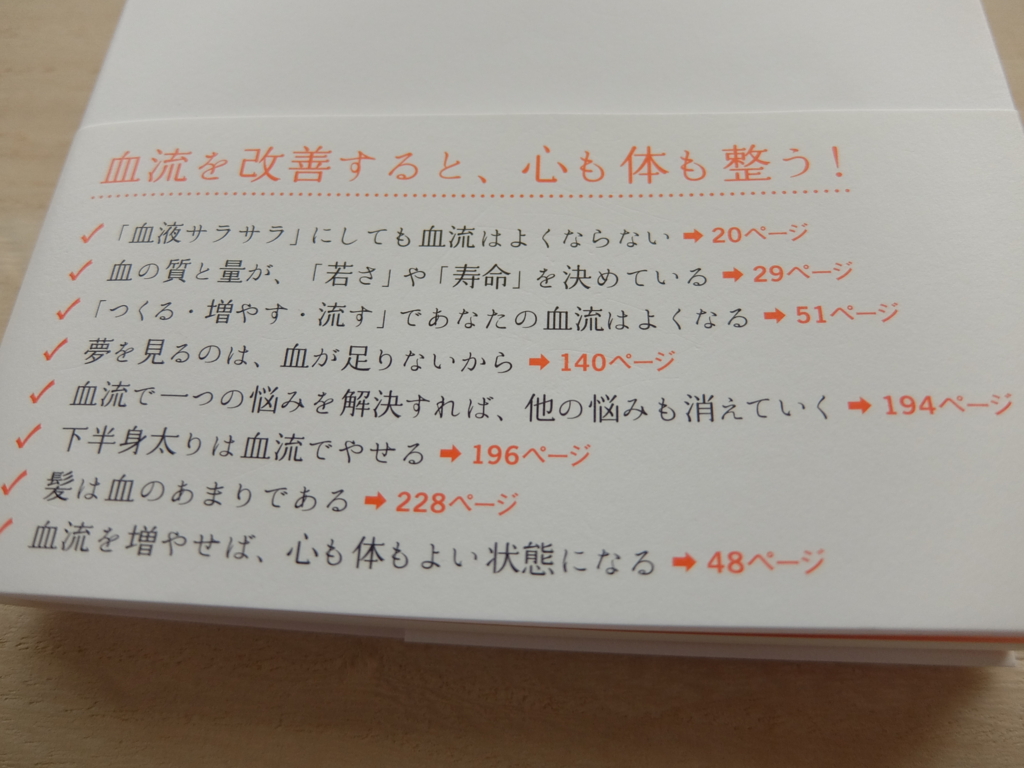 血流を改善すると、心も体も整う！
✓「血液サラサラ」にしても血流はよくならない ➡ 20ページ
✓ 血の質と量が、「若さ」や「寿命」を決めている ➡ 29ページ
✓「つくる・増やす・流す」であなたの血流はよくなる ➡ 51ページ
✓ 夢を見るのは、血が足りないから ➡ 140ページ
✓ 血流で一つの悩みを解決すれば、他の悩みも消えていく ➡ 194ページ
✓ 下半身太りは血流でやせる ➡ 196ページ
✓ 髪は血のあまりである ➡ 228ページ
✓ 血流を増やせば、心も体もよい状態になる ➡ 48ページ